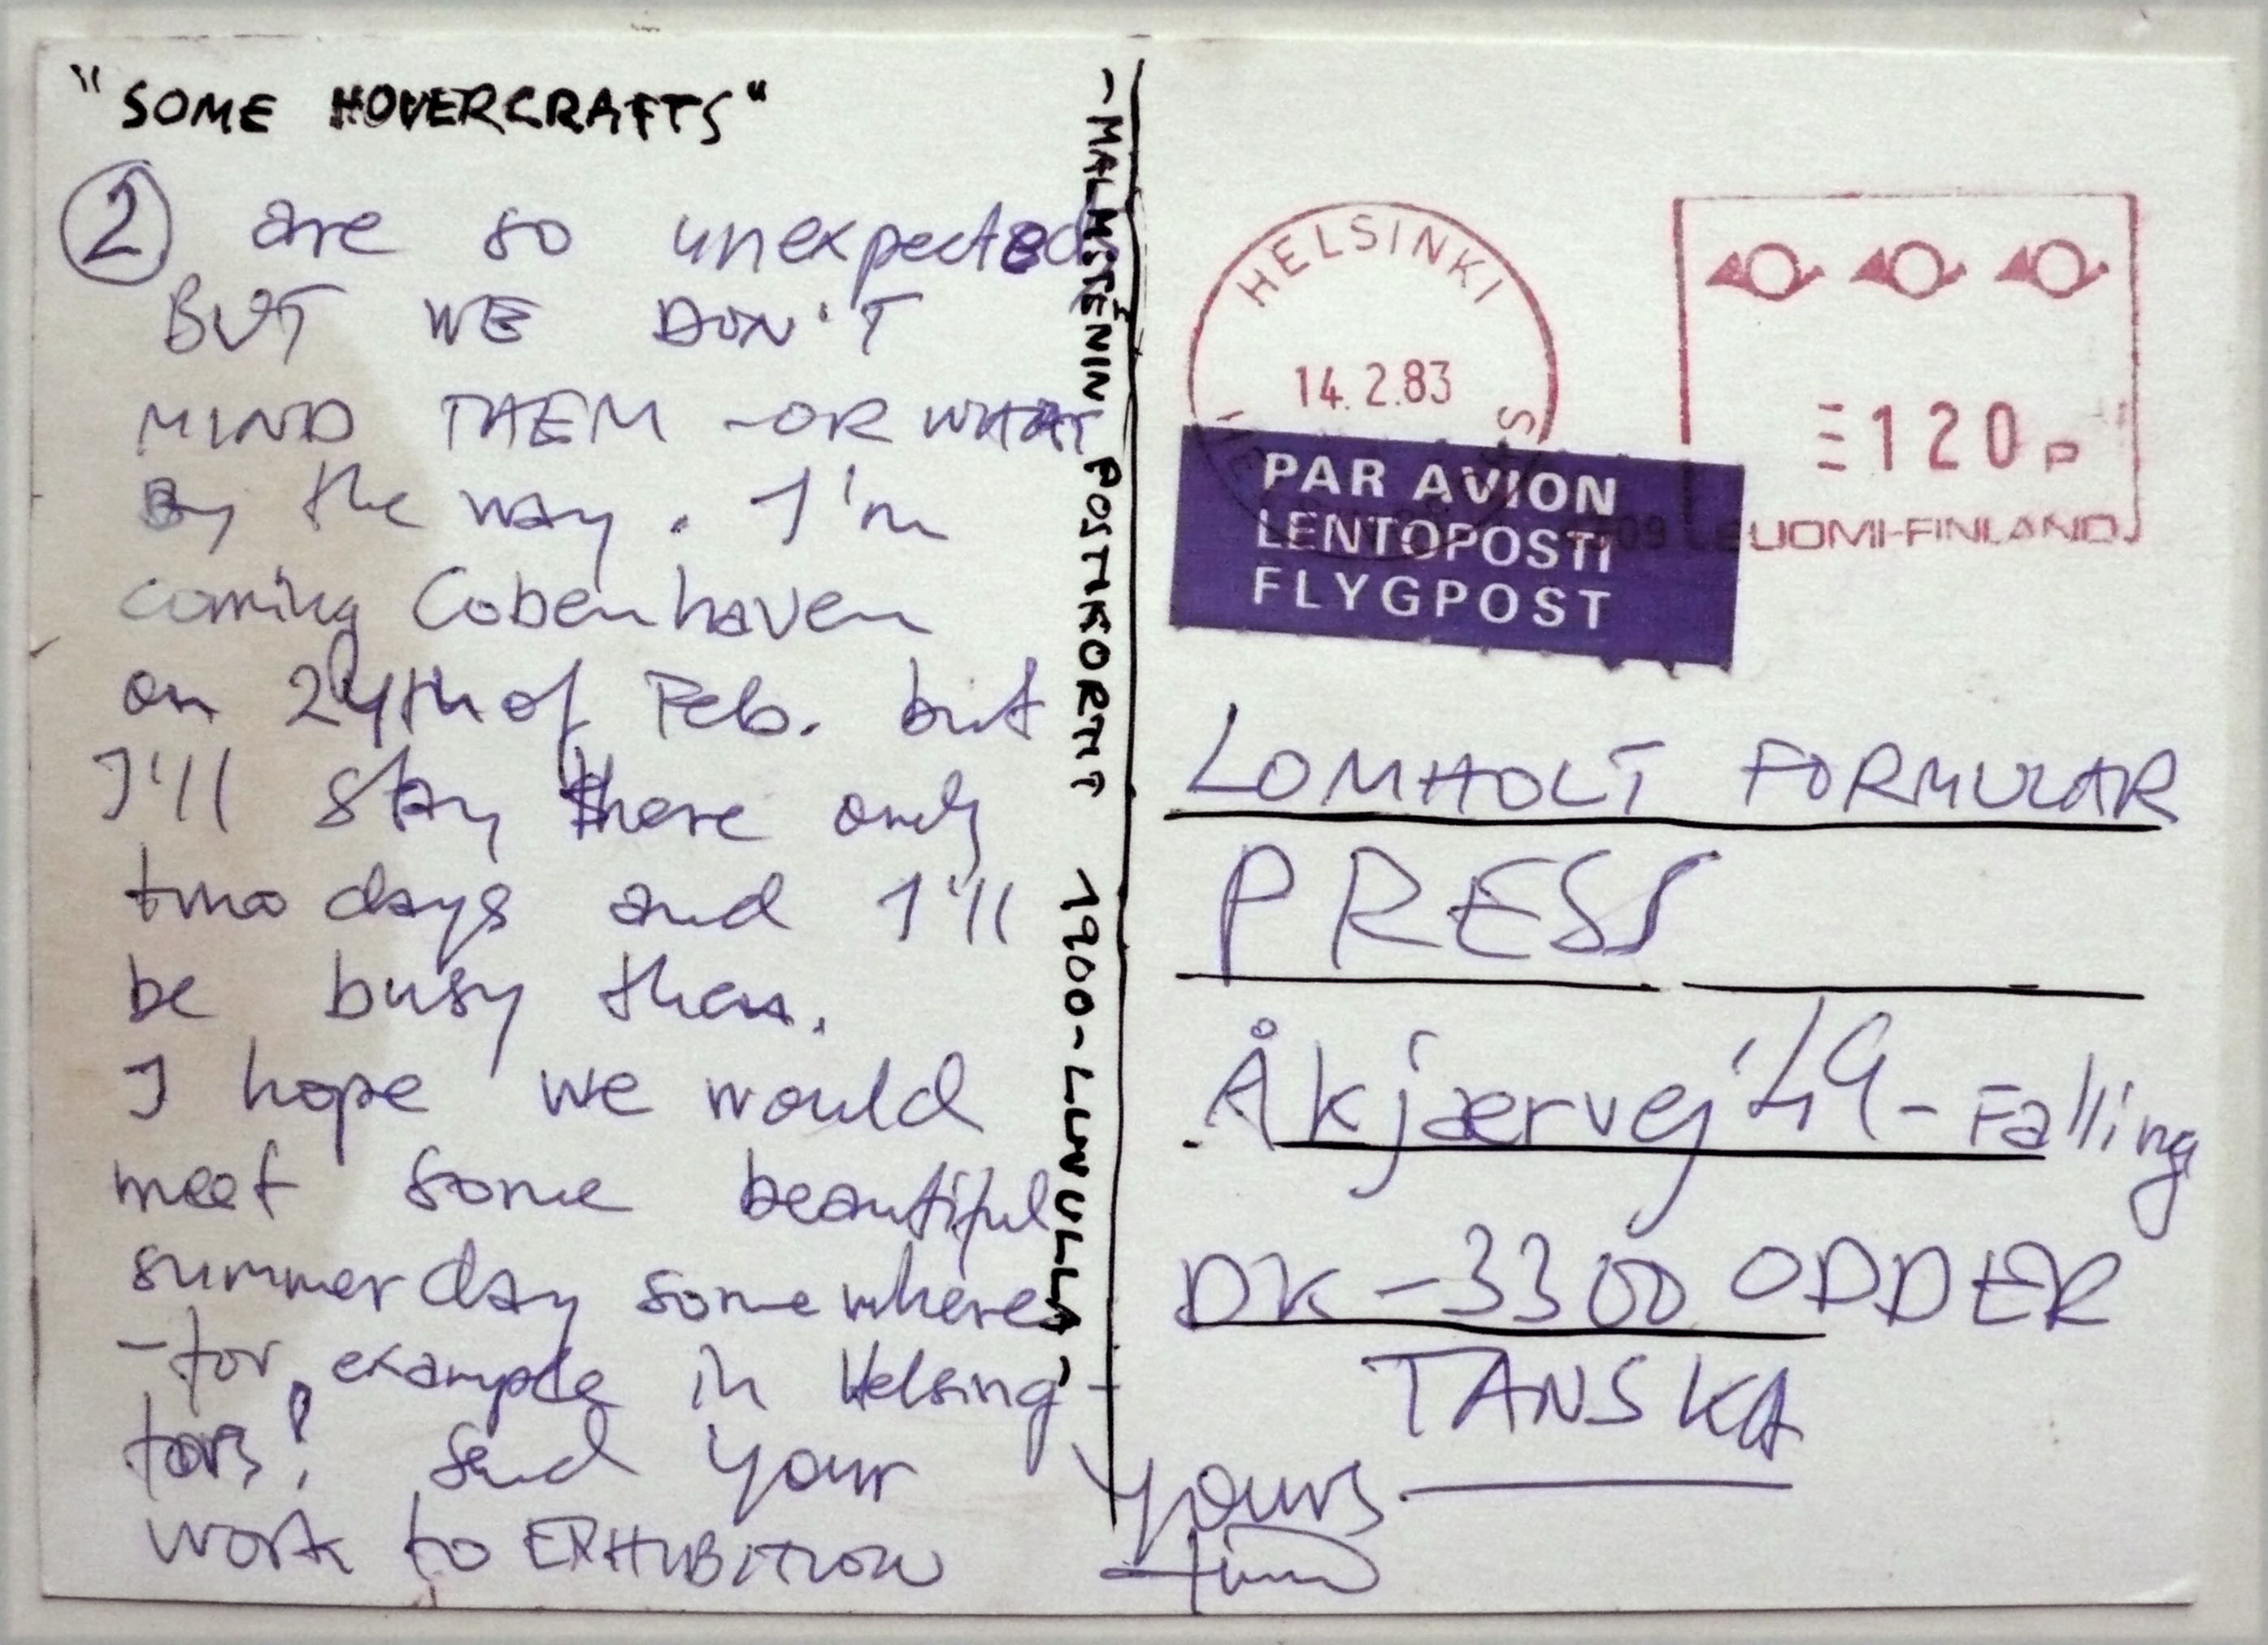 "SOME HOVERCRAFTS"
② are so unexpected
BUT WE DON'T
MIND THEM -OR WHAT
By the way. I'm
coming Cobenhaven
on 24th of Feb. but
I'll stay there only
two days and I'll
be busy then.
I hope we would
meet some beautiful
summer day somewhere
- for example in Helsing-
fors! Send your
work to EXHIBITION
yours
-MALMSTENIN POSTIKORTIT 1900-LUVULLA-
HELSINKI
14.2.83
120 P
SUOMI-FINLAND
PAR AVION
LENTOPOSTI
FLYGPOST
LOMHOLT FORMULAR
PRESS
Åkjærvej 49 - Falling
DK-3300 ODDER
TANSKA